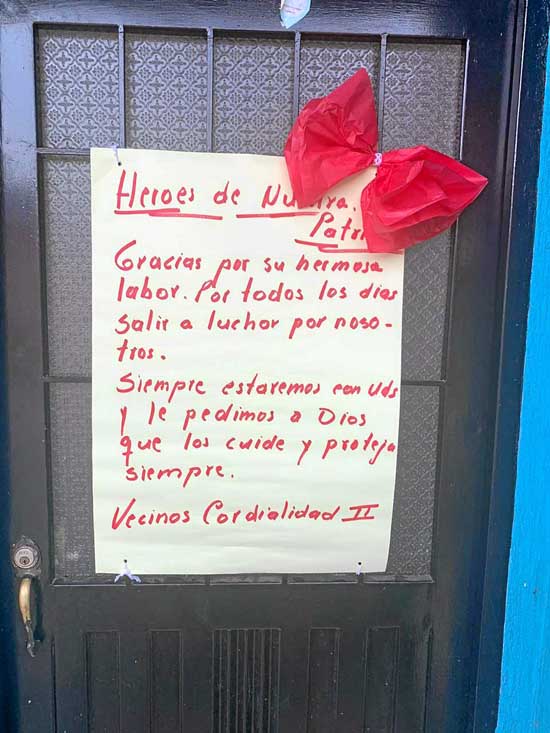 Heroes de
Gracias por su hermosa
labor. Por todos los dias
salir a luchar por noso-
tros.
Siempre estaremos con Uds
y le pedimos a Dios
que los cuide y proteja
siempre.
Vecinos Cordialidad II